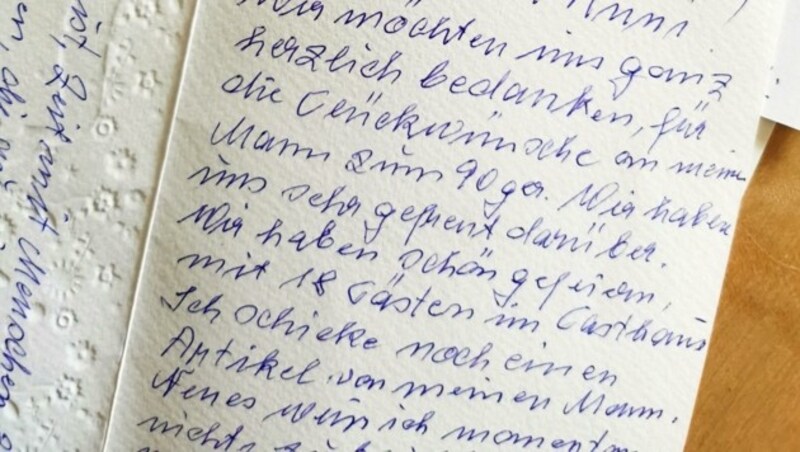 Wir möchten uns ganz
herzlich bedanken, für
die Glückwünsche an meinen
Mann zum 90ger. Wir haben
uns sehr gefreut darüber.
Wir haben schön gefeiert,
mit 18 Gästen im Gasthaus
Ich schicke noch einen
Artikel von meinen Mann.
Neues weiß ich momentan
nicht
mit Menschen